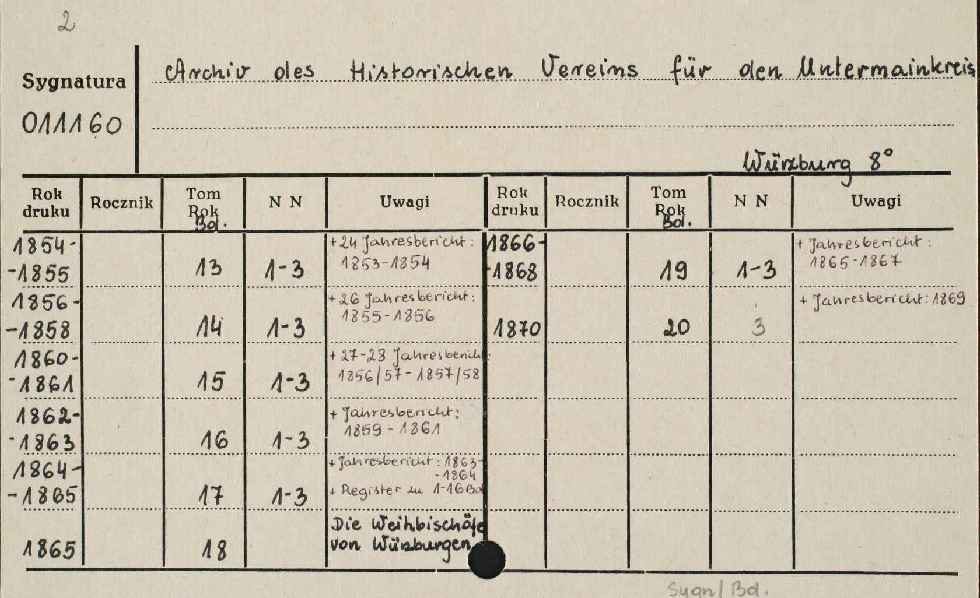 2
Sygnatura
011160
Archiv des Historischen Vereins für den Untermainkreis
Würzburg 8°
Rok druku Rocznik Tom Rok Bd. N N Uwagi Rok druku Rocznik Tom Rok Bd. N N Uwagi
1854-
-1855 13 1-3 + 24 Jahresbericht: 1853-1854
1856-
-1858 14 1-3 + 26 Jahresbericht: 1855-1856
1860-
-1861 15 1-3 + 27-28 Jahresbericht: 1856/57-1857/58
1862-
-1863 16 1-3 + Jahresbericht: 1859-1861
1864-
-1865 17 1-3 + Jahresbericht: 1863-
-1864
+ Register zu 1-16Bd
1865 18 Die Weihbischöfe
von Würzburgen
1866-
-1868 19 1-3 + Jahresbericht: 1865-1867
1870 20 3 + Jahresbericht: 1869
Sygn/Bd.